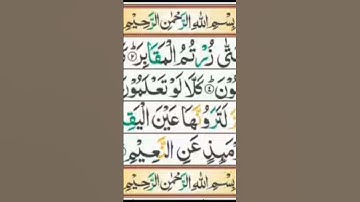 بِسْمِ اللهِ الرَّحْمٰنِ الرَّحِيْمِ
زُرْتُمُ الْمَقَابِرَ ۲
كَلَّا لَوْ تَعْلَمُوْنَ
لَتَرَوُنَّهَا عَيْنَ
عَنِ النَّعِيْمِ
بِسْمِ اللهِ الرَّحْمٰنِ الرَّحِيْمِ